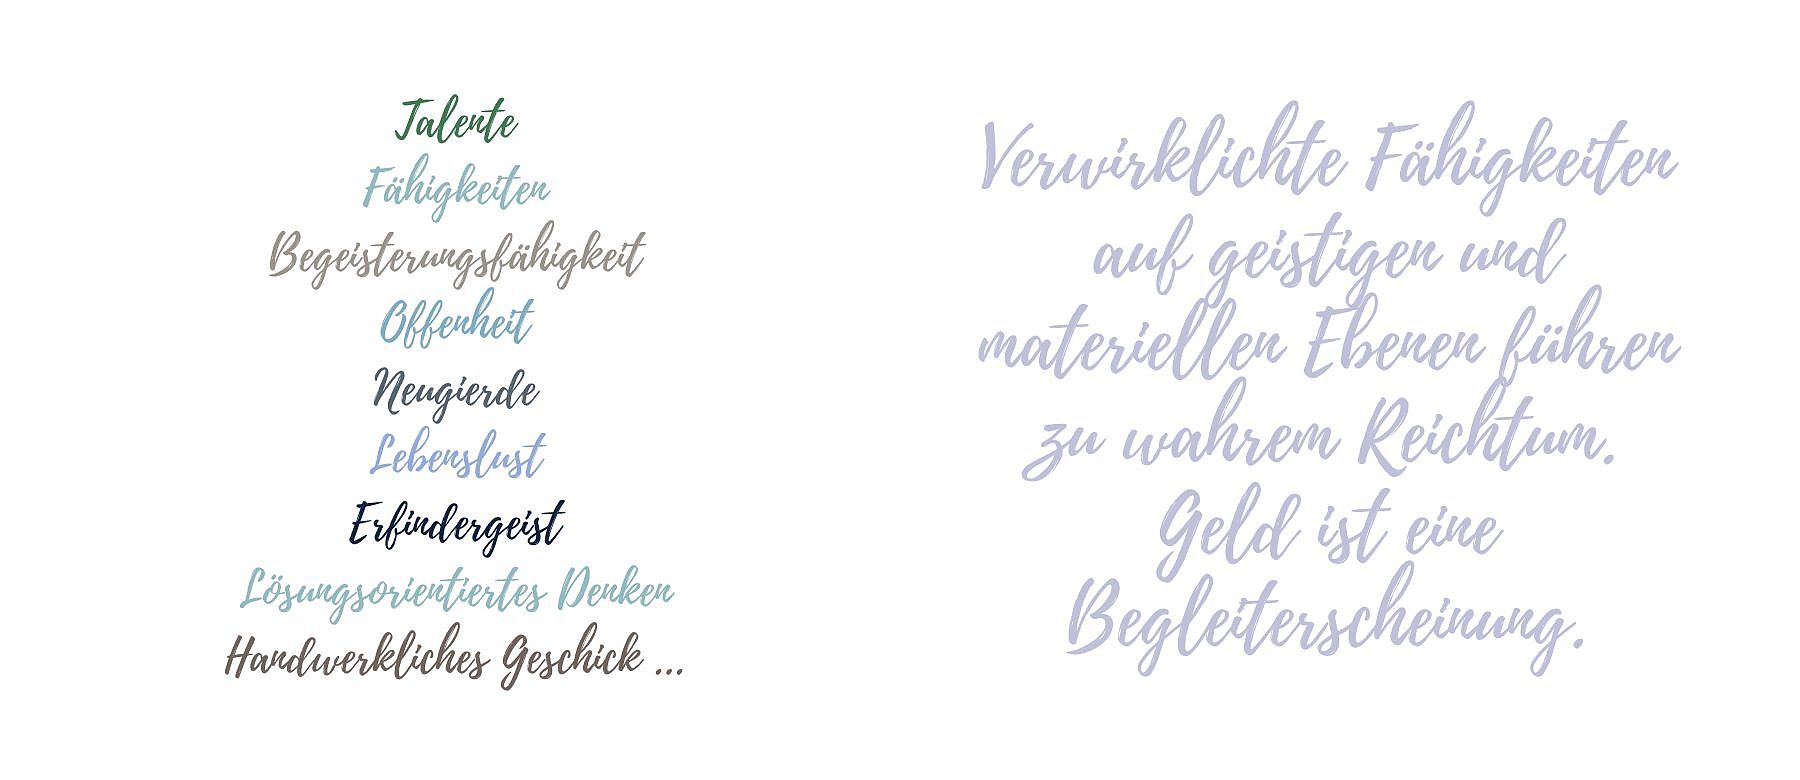 Talente
Fähigkeiten
Begeisterungsfähigkeit
Offenheit
Neugierde
Lebenslust
Erfindergeist
Lösungsorientiertes Denken
Handwerkliches Geschick ...
Verwirklichte Fähigkeiten
auf geistigen und
materiellen Ebenen führen
zu wahrem Reichtum.
Geld ist eine
Begleiterscheinung.